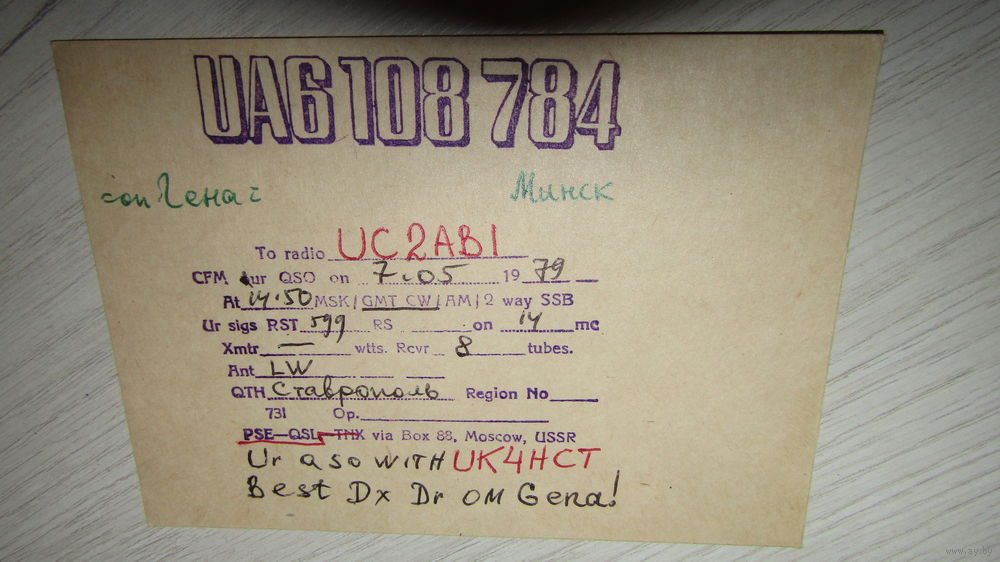 UA6 108 784
=op Гена=
Минск
To radio UC2ABI
CFM ur QSO on 7.05 1979
At 14.50 MSK/GMT CW/AM/2 way SSB
Ur sigs RST 599 RS on 14 mc
Xmtr — wtts. Rcvr 8 tubes.
Ant LW
QTH Ставрополь Region No
731 Op.
PSE—QSL TNX via Box 88, Moscow, USSR
Ur qso WITH UK4HCT
Best Dx Dr OM Gena!
www.ay.by